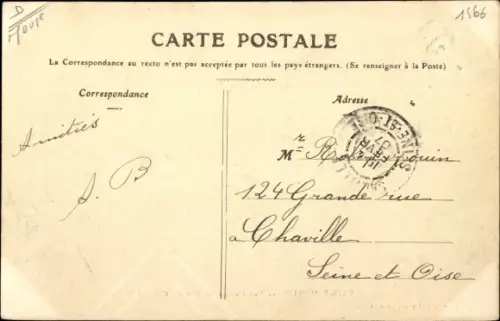 D
Meuse
1566
CARTE POSTALE
La Correspondance au recto n'est pas acceptée par tous les pays étrangers. (Se renseigner à la Poste)
Correspondance
Adresse
Amitiés
S. B
Mr
124 Grande rue
à Chaville
Seine et Oise
SEINE-ET-OISE